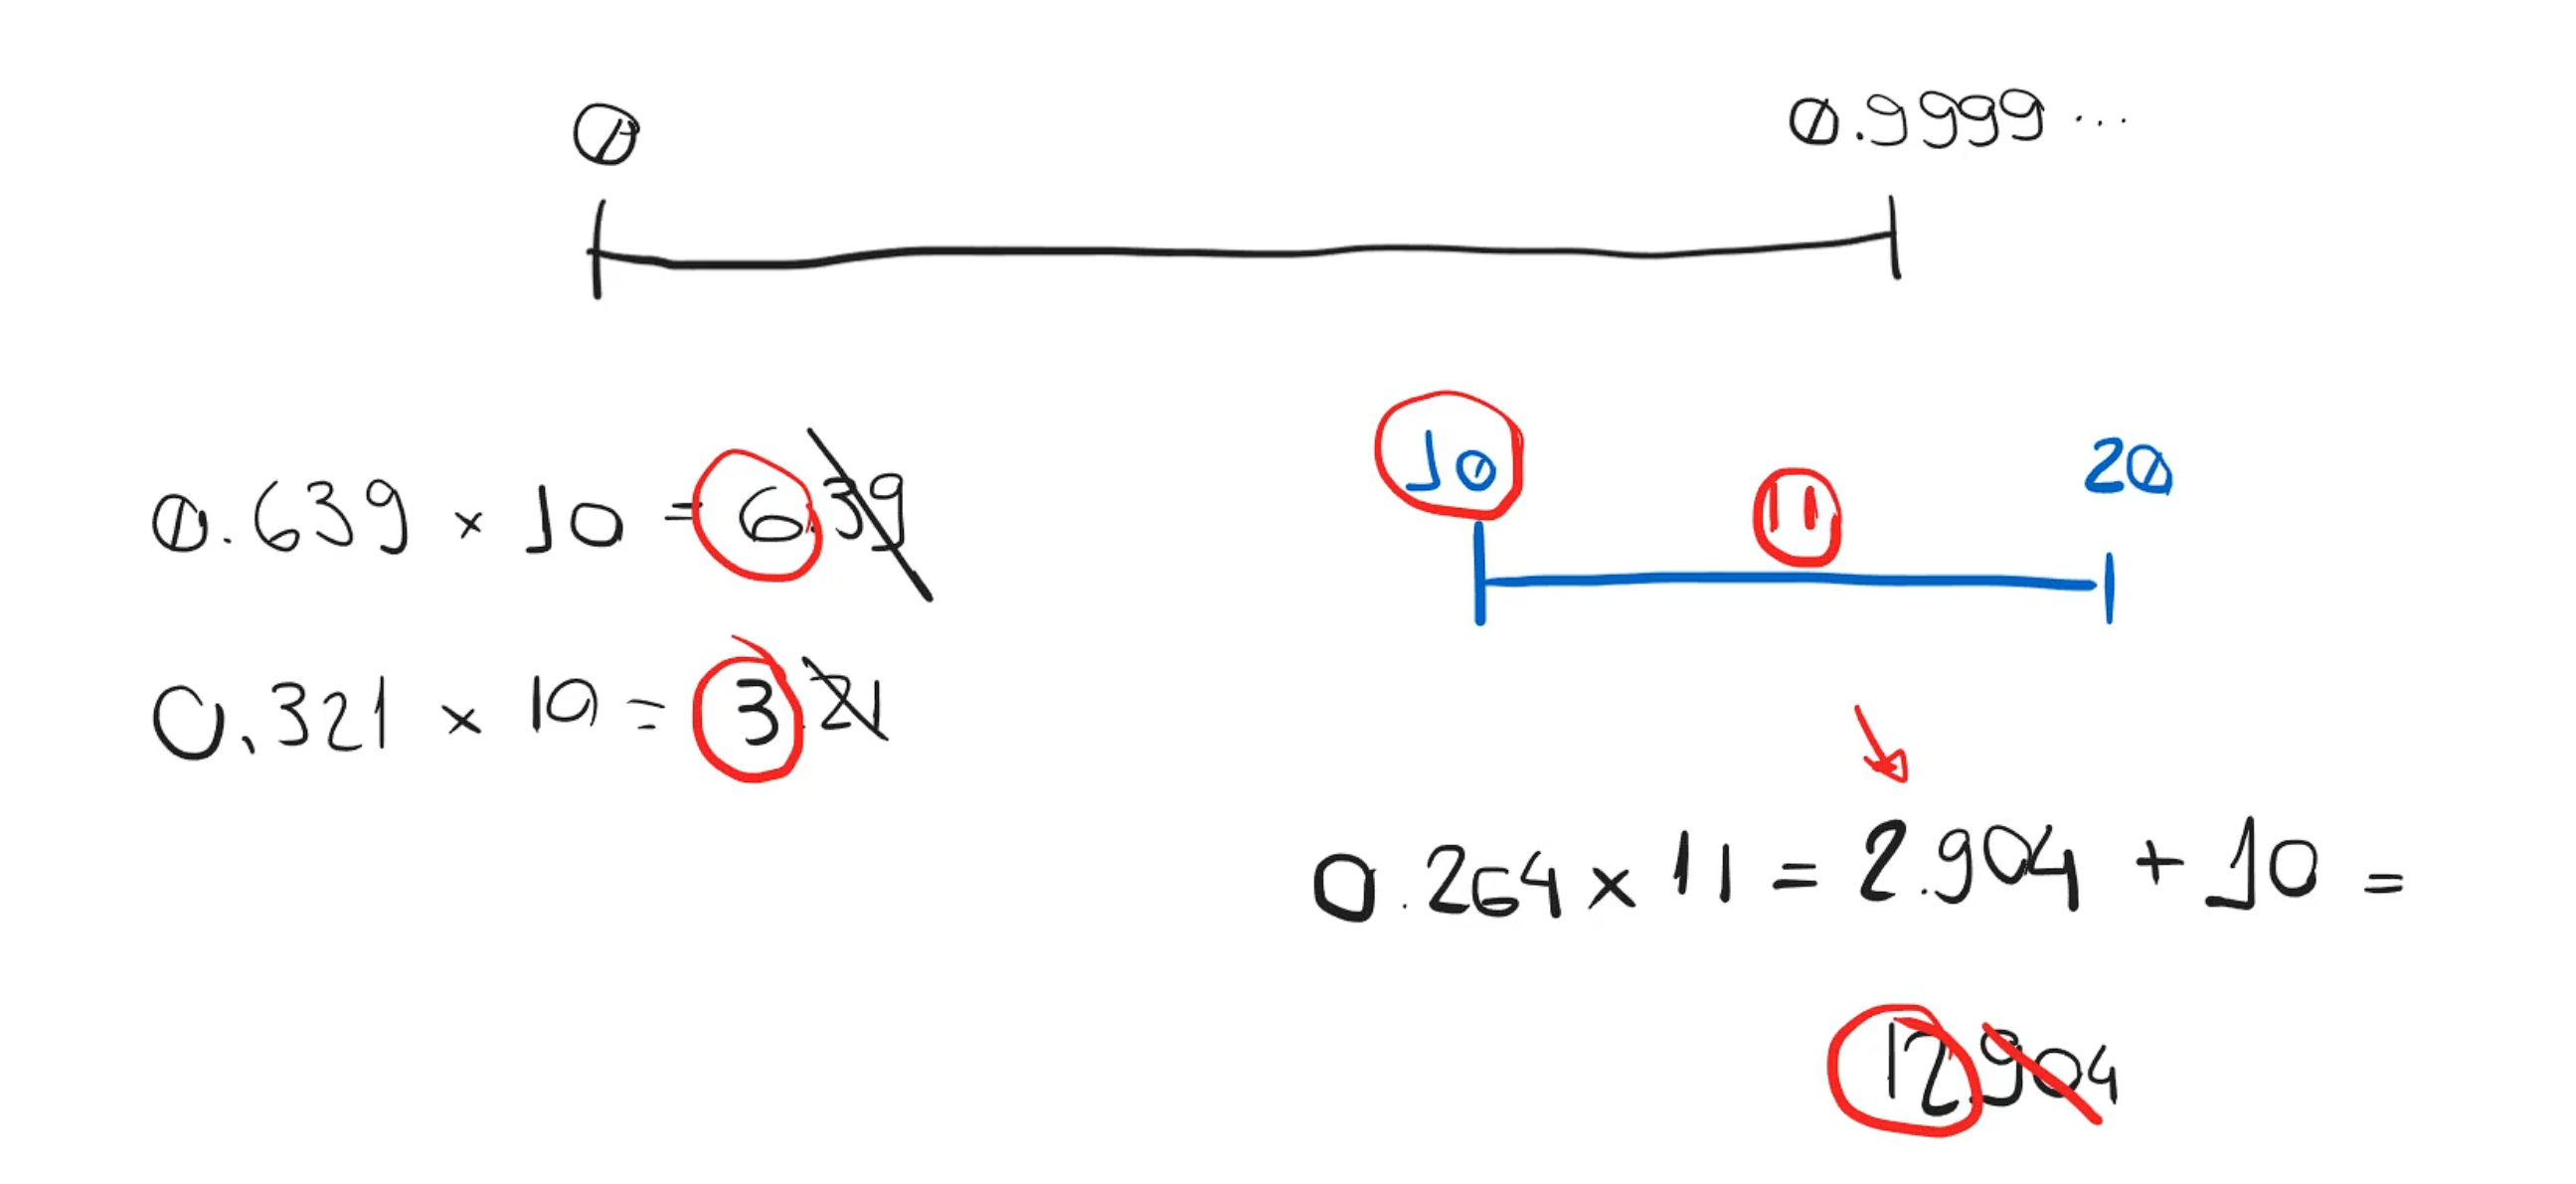 0 0.9999...
0.639 × 10 = 6.39
0.321 × 10 = 3.21
10 11 20
0.264 × 11 = 2.904 + 10 =
12.904